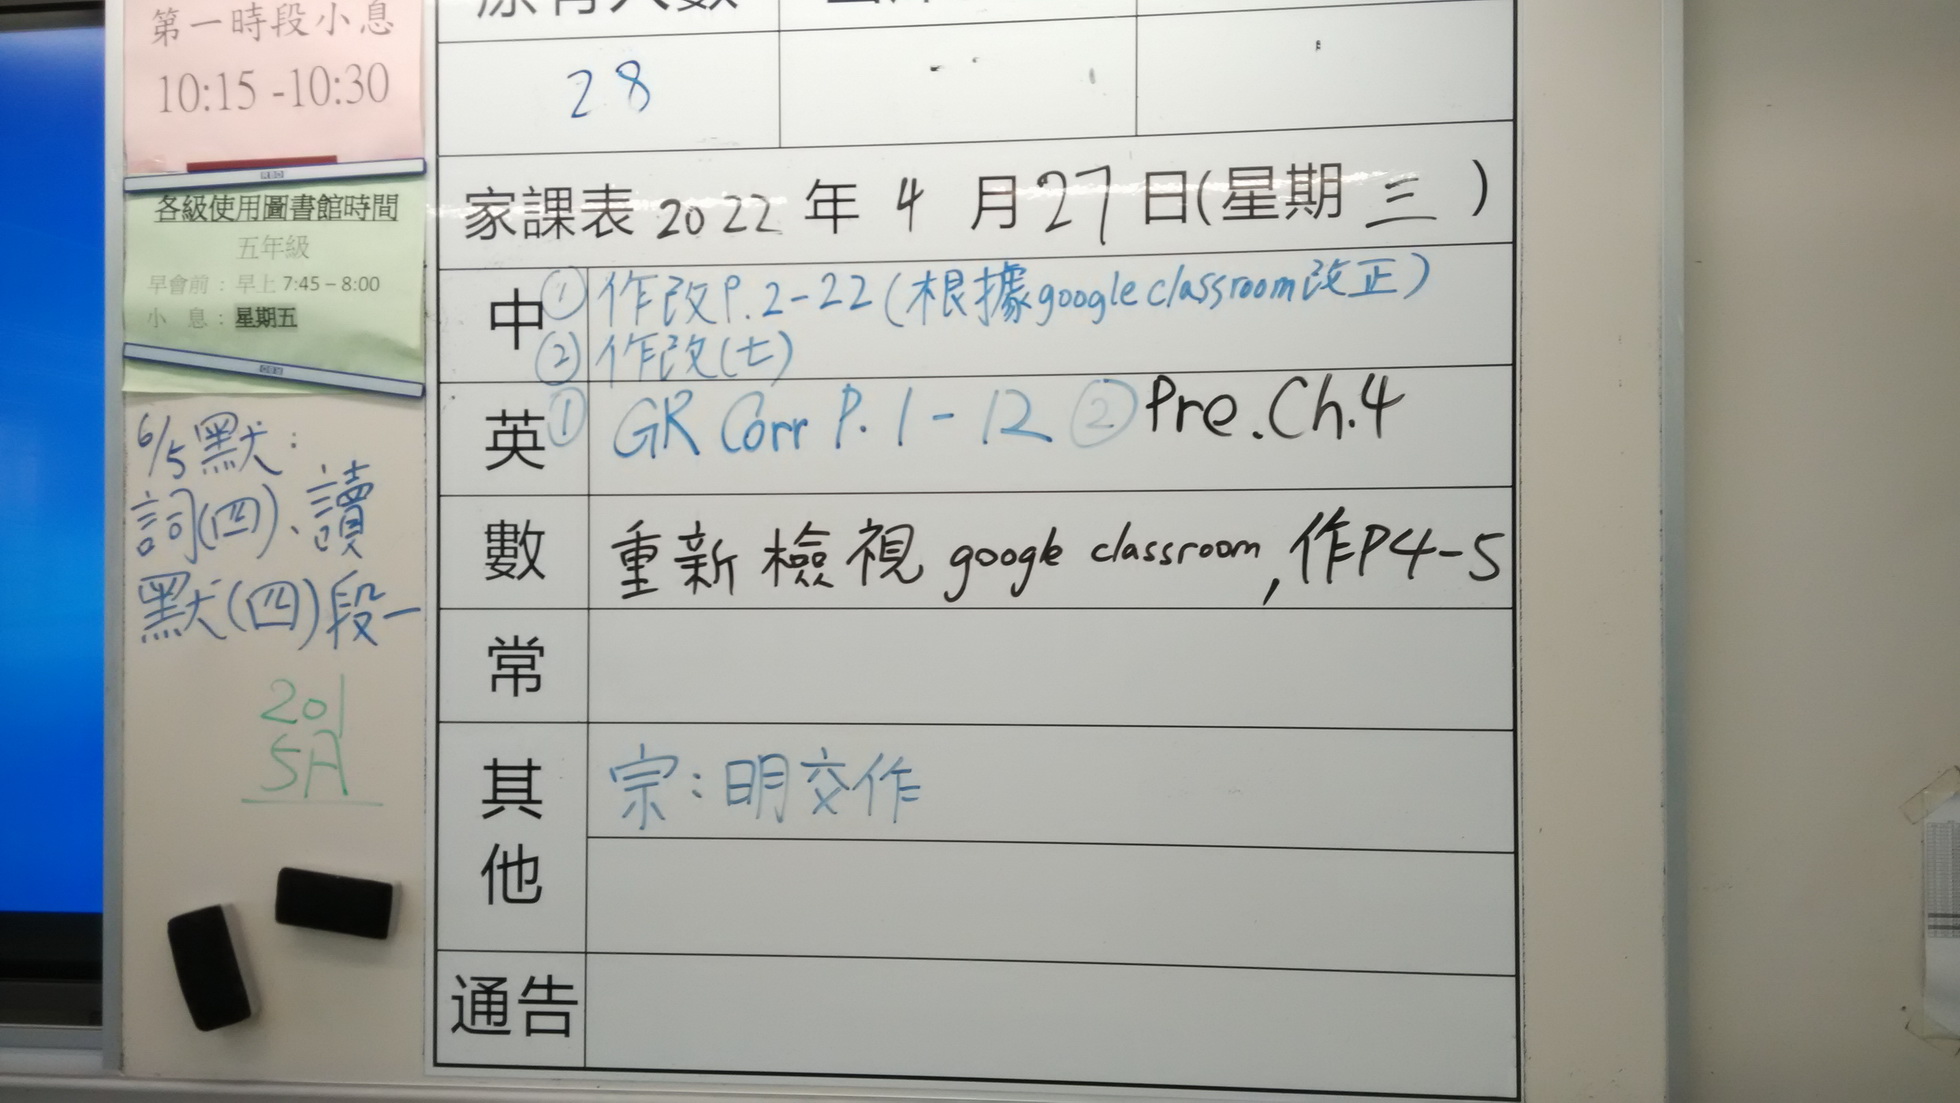 第一時段小息
10:15 -10:30
各級使用圖書館時間
五年級
早會前：早上 7:45 – 8:00
小　息：星期五
6/5默：
詞(四)、讀
默(四)段一
201
5A
原有人數
28
家課表 2022 年 4 月 27 日(星期 三 )
中 ① 作改P.2-22(根據google classroom改正)
② 作改(七)
英 ① GR Corr P. 1-12 ② Pre.Ch.4
數 重新檢視 google classroom, 作P4-5
常
其他 宗：明交作
通告